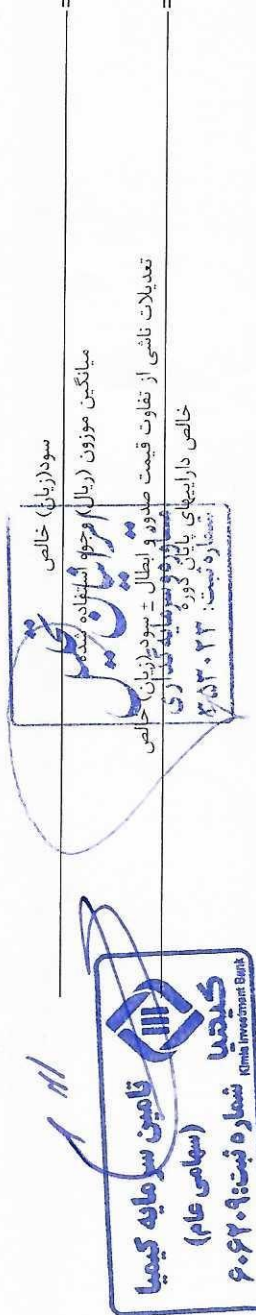 سود(زیان) خالص
=
میانگین موزون (ریال) وجوه استفاده شده
تعدیلات ناشی از تفاوت قیمت صدور و ابطال ± سود(زیان) خالص
=
خالص داراییهای پایان دوره
مشاوره سرمایه گذاری
شماره ثبت: ۴۵۳۰۲۳
تامین سرمایه کیمیا
(سهامی عام)
شماره ثبت: ۶۰۶۲۰۹
کیمیا
Kimia Investment Bank